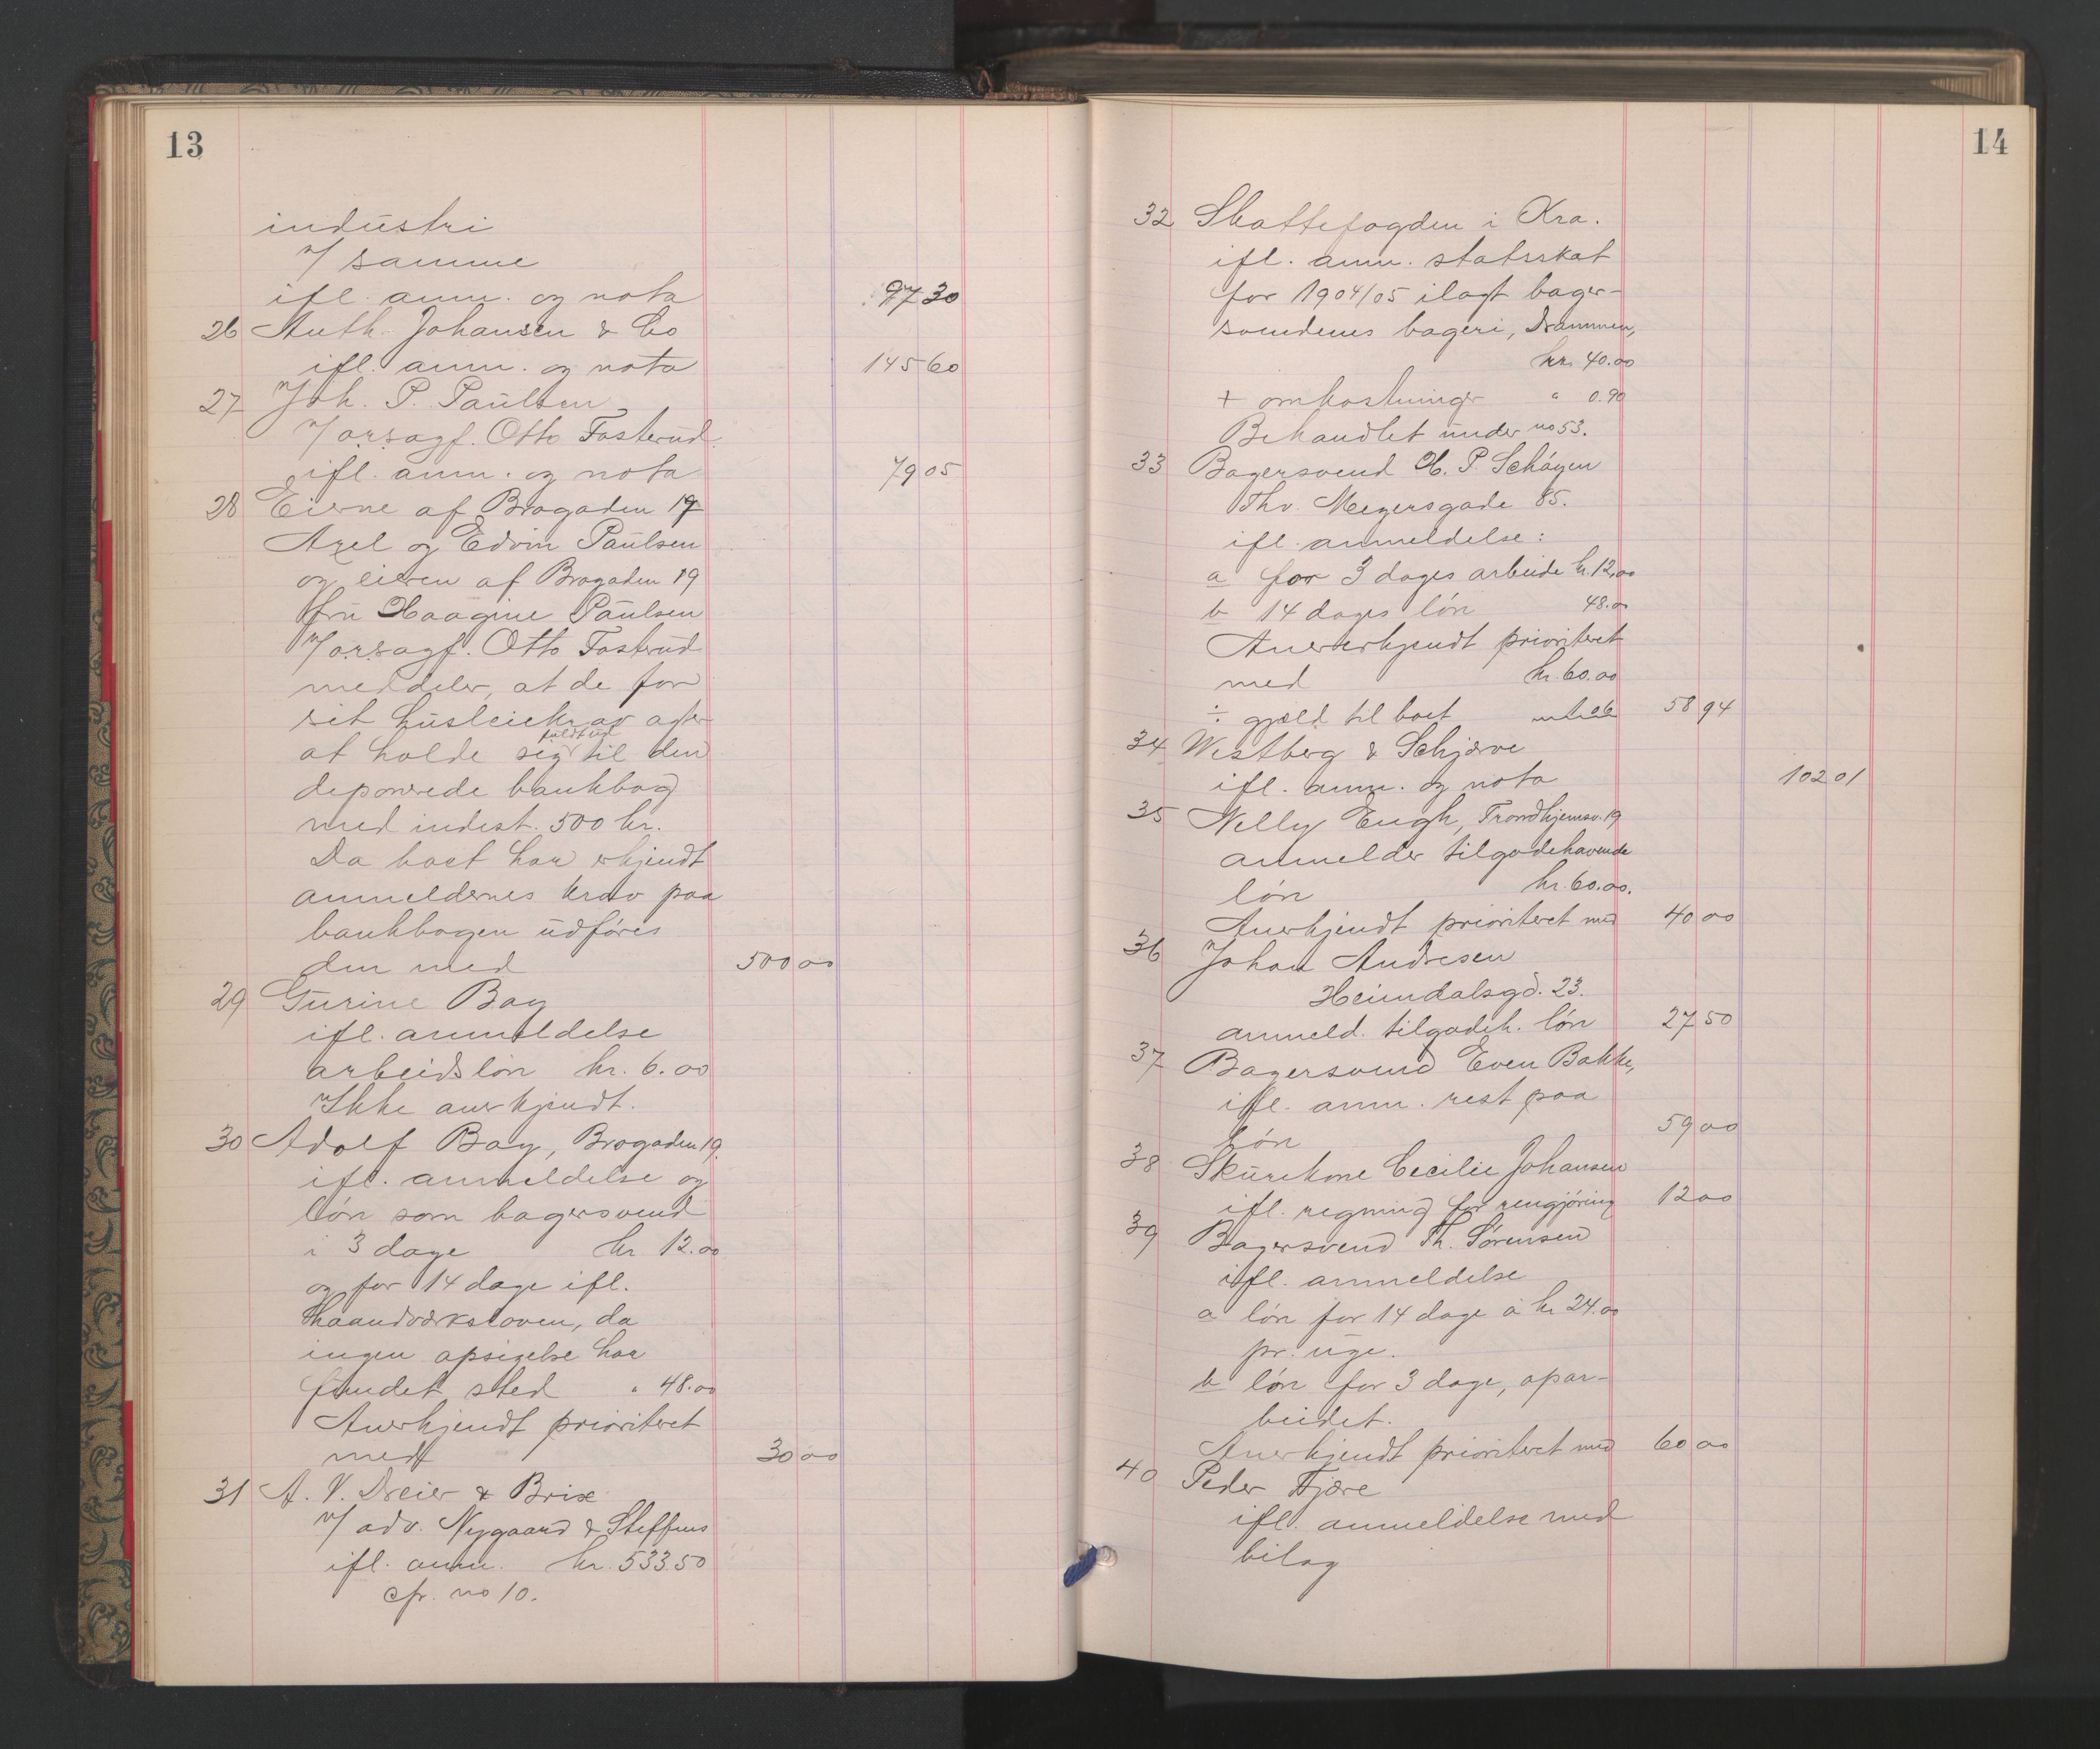 13
industri
v/ samme
ifl. anm. og nota 97 30
26 Anth. Johansen & Co
ifl. anm. og nota 145 60
27 Joh. P. Paulsen
v/ o.r.sagf. Otto Fosterud
ifl. anm. og nota 79 05
28 Eierne af Brogaden 17
Axel og Edvin Paulsen
og eieren af Brogaden 19
fru Haagine Paulsen
v/ o.r.sagf. Otto Fosterud
meddeler, at de for
sit husleiekrav agter
at holde sig fuldt ud til den
deponerede bankbog
med indest. 500 kr.
Da boet har erkjendt
anmeldernes krav paa
bankbogen udføres
den med 500 00
29 Gurine Bay
ifl. anmeldelse
arbeidsløn kr. 6.00
Ikke anerkjendt.
30 Adolf Bay, Brogaden 19.
ifl. anmeldelse og
løn som bagersvend
i 3 dage kr 12.00
og for 14 dage ifl.
haandværksloven, da
ingen opsigelse har
fundet sted " 48.00
Anerkjendt prioriteret
med 30 00
31 A. V. Dreier & Brix
v/ adv. Nygaard & Steffens
ifl. anm. kr. 533.50
cfr. no 10.
14
32 Skattefogden i Kra.
ifl. anm. statsskat
for 1904/05 ilagt bager-
svendenes bageri, Drammen,
kr. 40.00
+ omkostninger " 0.90
Behandlet under no 53.
33 Bagersvend H. P. Schøyen
Thv. Meyersgade 85.
ifl. anmeldelse:
a for 3 dages arbeide kr. 12.00
b 14 dages løn 48.00
Anererkjendt prioriteret
med kr. 60.00
÷ gjæld til boet 58 94
34 Westberg & Schjærve
ifl. anm. og nota 102 01
35 Nelly Engh, Trondhjemsv. 19
anmelder tilgodehavende
løn kr. 60.00.
Anerkjendt prioriteret med 40 00
36 Johan Andresen
Heimdalsgd. 23.
anmeld. tilgodeh. løn 27 50
37 Bagersvend Even Bakke,
ifl. anm. rest paa
løn 59 00
38 Skurekone Cecilie Johansen
ifl. regning for rengjøring 12 00
39 Bagersvend Th. Sørensen
ifl. anmeldelse
a løn for 14 dage à kr 24.00
pr. uge.
b løn for 3 dage, opar-
beidet.
Anerkjendt prioriteret med 60 00
40 Peder Fjære
ifl. anmeldelse med
bilag